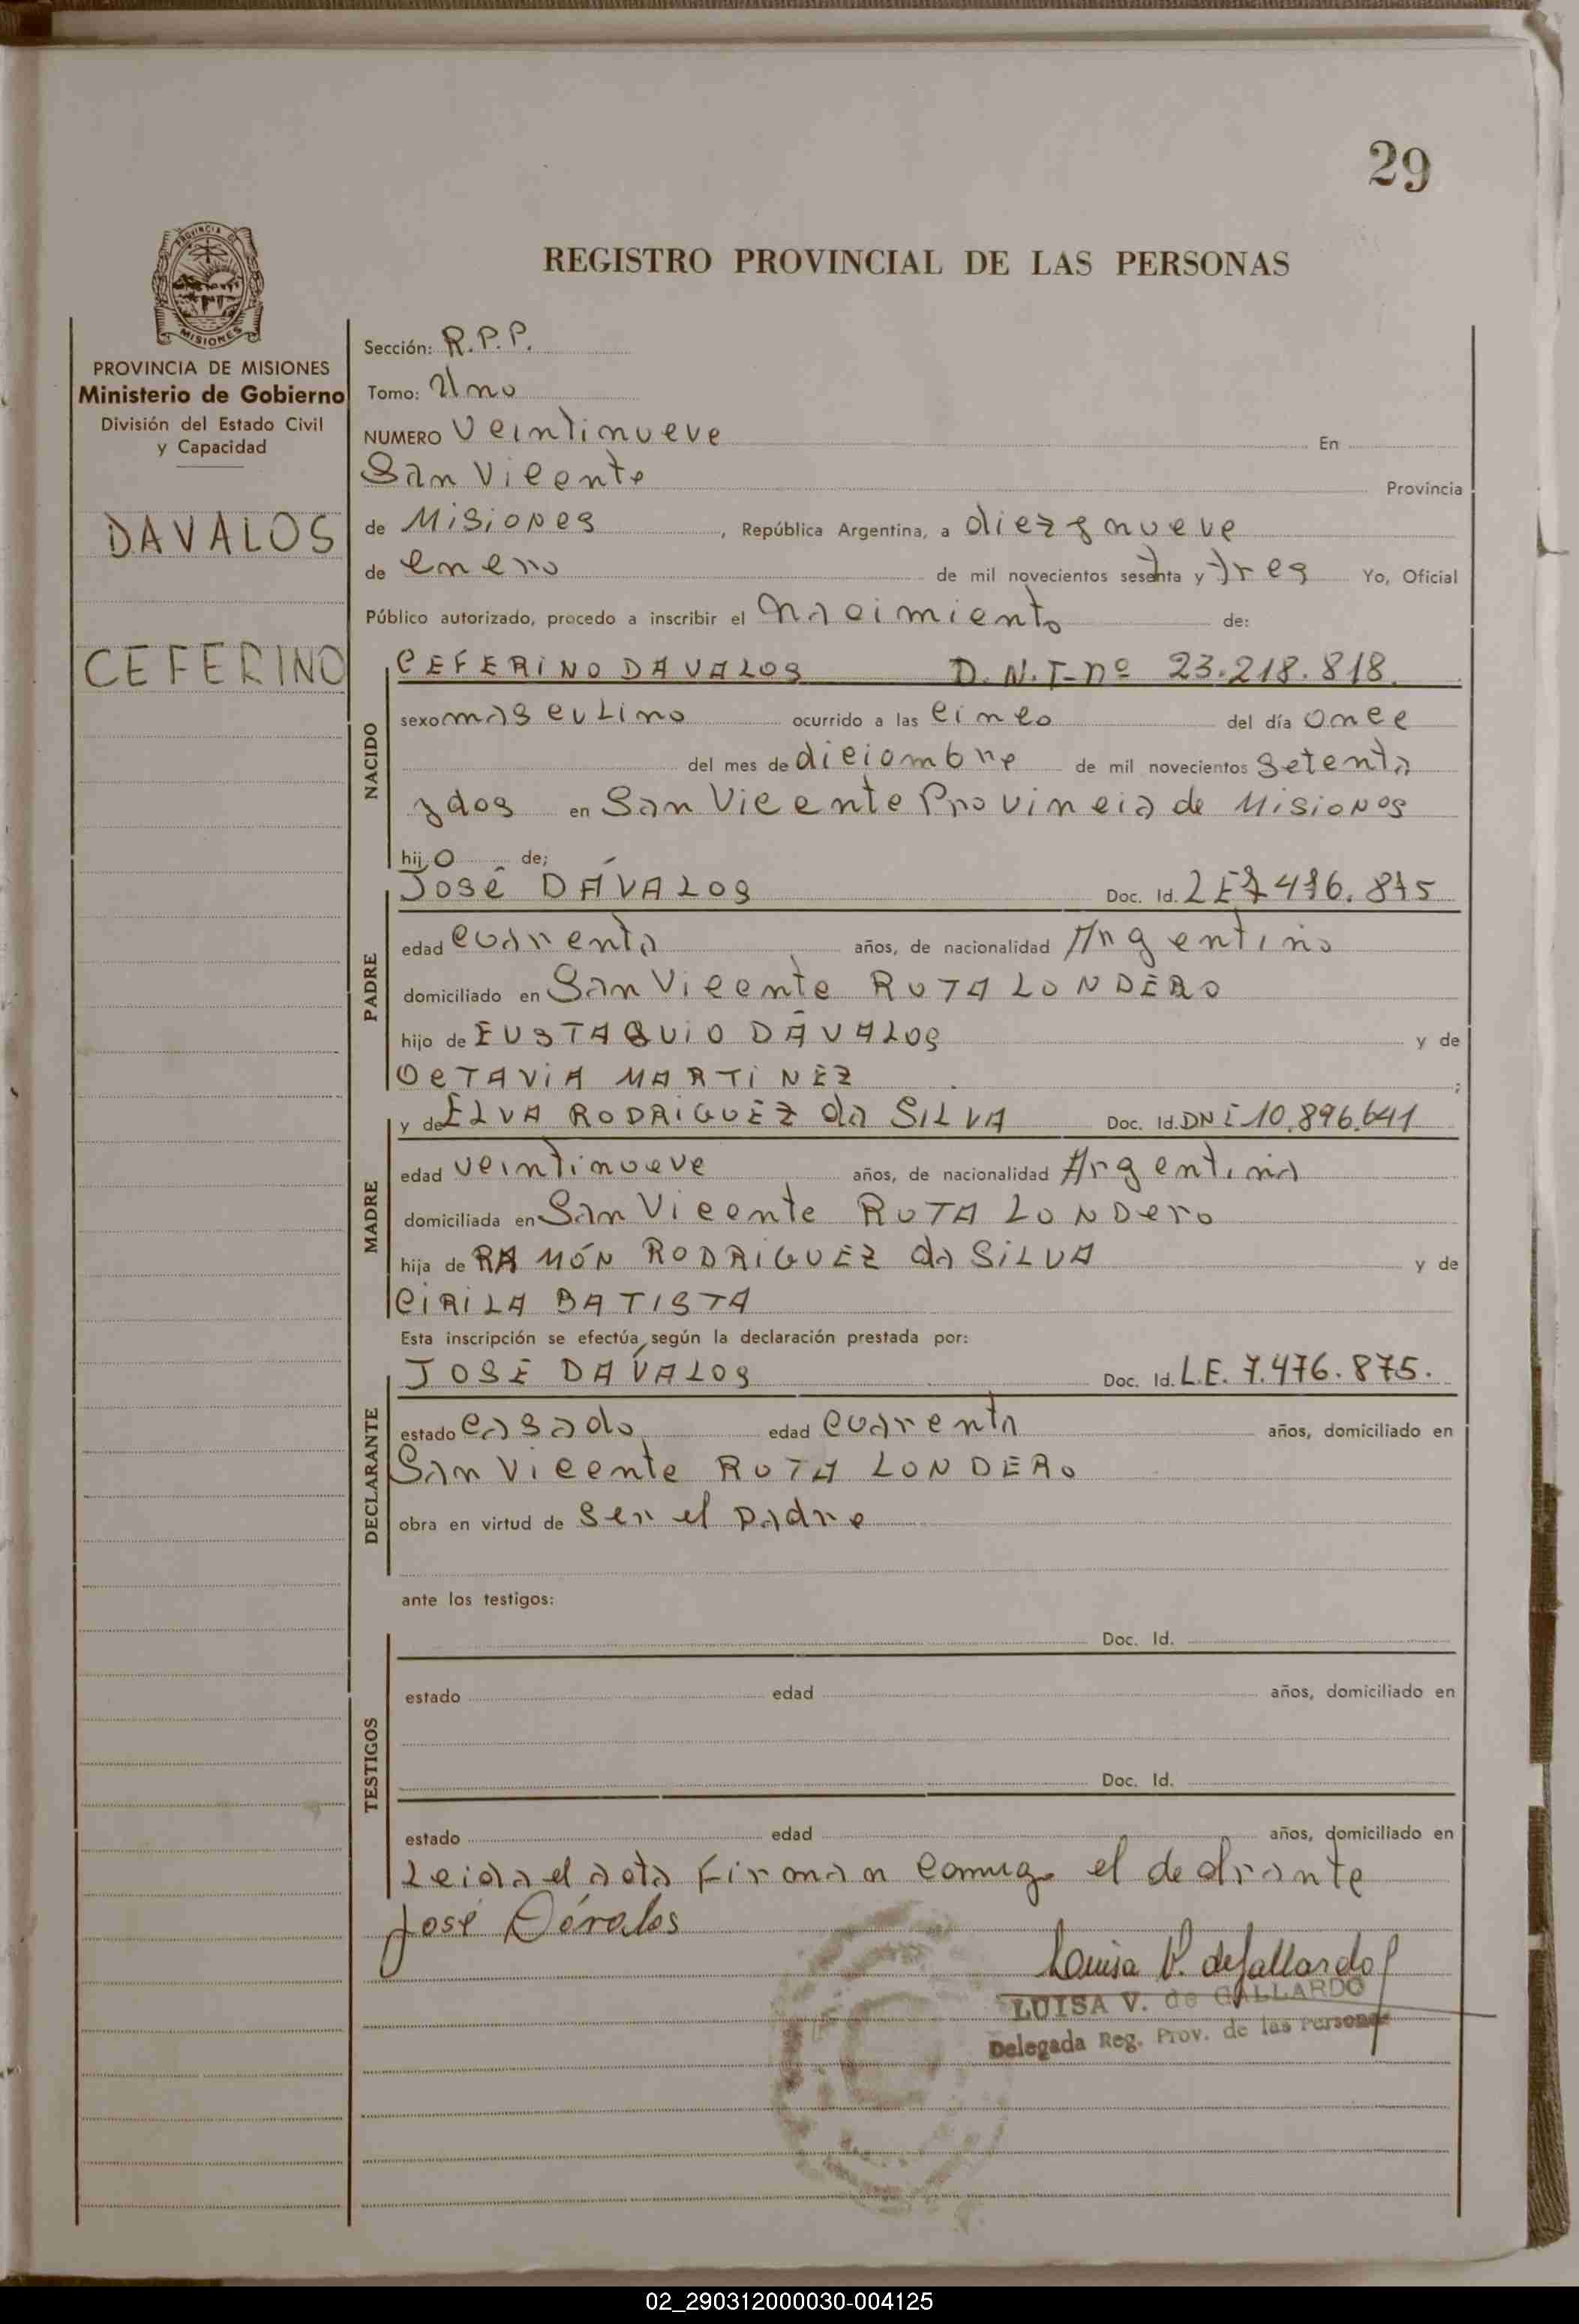 29
REGISTRO PROVINCIAL DE LAS PERSONAS
PROVINCIA DE MISIONES
PROVINCIA DE MISIONES
Ministerio de Gobierno
División del Estado Civil
y Capacidad
DAVALOS
CEFERINO
Sección: R.P.P.
Tomo: Uno
NUMERO Veintinueve En
San Vicente Provincia
de Misiones, República Argentina, a diez y nueve
de enero de mil novecientos setenta y tres Yo, Oficial
Público autorizado, procedo a inscribir el nacimiento de:
NACIDO
CEFERINO DAVALOS D.N.I-nº 23.218.818
sexo masculino ocurrido a las cinco del día once
del mes de diciembre de mil novecientos setenta
y dos en San Vicente Provincia de Misiones
hijo de;
PADRE
José DÁVALOS Doc. Id. LE 7 476.875
edad cuarenta años, de nacionalidad Argentino
domiciliado en San Vicente RUTA LONDERO
hijo de EUSTAQUIO DÁVALOS y de
OCTAVIA MARTINEZ ;
MADRE
y de ELVA RODRIGUEZ da SILVA Doc. Id. DNI 10.896.641
edad veintinueve años, de nacionalidad Argentina
domiciliada en San Vicente RUTA LONDero
hija de RAMÓN RODRIGUEZ da SILVA y de
CIRILA BATISTA
Esta inscripción se efectúa según la declaración prestada por:
DECLARANTE
JOSE DÁVALOS Doc. Id. L.E. 7.476.875.
estado casado edad cuarenta años, domiciliado en
San Vicente RUTA LONDERO
obra en virtud de ser el padre
ante los testigos:
TESTIGOS
Doc. Id.
estado edad años, domiciliado en
Doc. Id.
estado edad años, domiciliado en
Leida el acta firman comigo el declrante
José Dávalos
Louisa V. de Gallardo
LUISA V. de GALLARDO
Delegada Reg. Prov. de las Personas
02_290312000030-004125